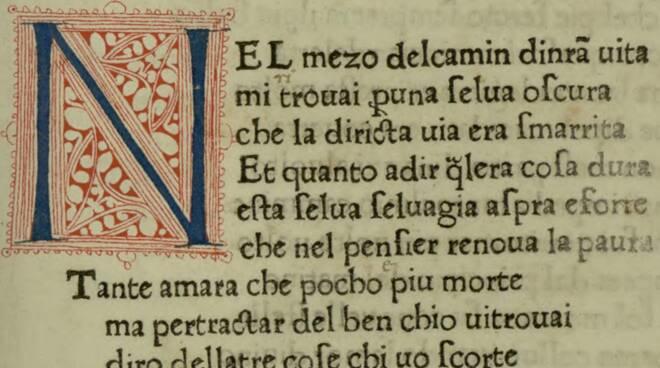 NEL mezo delcamin dinr̄a uita
mi trouai ꝑuna ſelua oſcura
che la diricta uia era ſmarrita
Et quanto adir q̄lera coſa dura
eſta ſelua ſeluagia aſpra eforte
che nel penſier renoua la paura
Tante amara che pocho piu morte
ma pertractar del ben chio uitrouai
diro dellatre coſe chi uo ſcorte